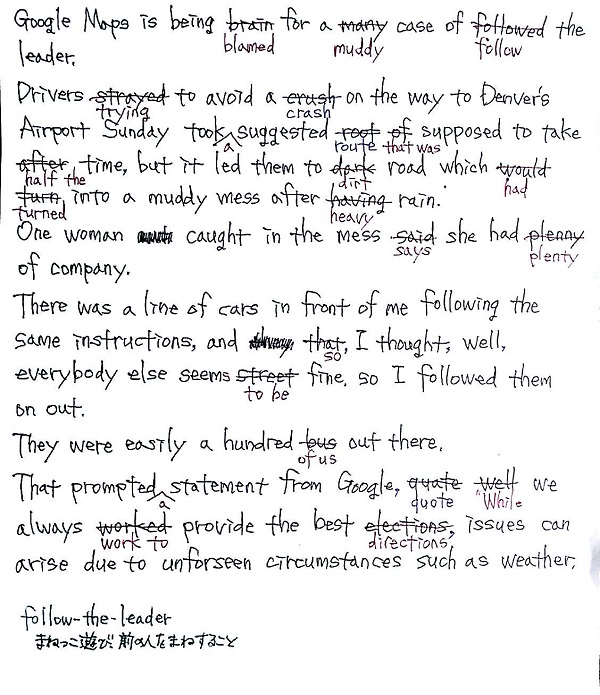 Google Maps is being brain for a many case of followed the
blamed muddy follow
leader.
Drivers strayed to avoid a crush on the way to Denver's
trying crash
Airport Sunday took suggested root of supposed to take
a route that was
after time, but it led them to dark road which would
half the dirt had
turn into a muddy mess after having rain.
turned heavy
One woman caught in the mess said she had plenny
says plenty
of company.
There was a line of cars in front of me following the
same instructions, and that, I thought, well,
so
everybody else seems street fine, so I followed them
to be
on out.
They were easily a hundred bus out there.
of us
That prompted statement from Google, quate well we
a quote "While
always worked provide the best elections, issues can
work to directions,
arise due to unforseen circumstances such as weather.
follow-the-leader
まねっこ遊び 前の人をまねすること